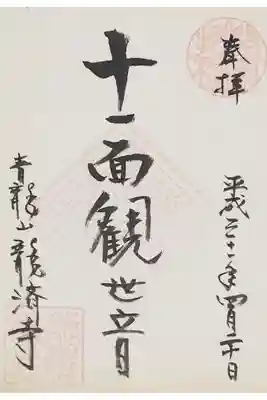 奉拝
平成二十一年四月二十日
十一面観世音
青龍山龍済寺